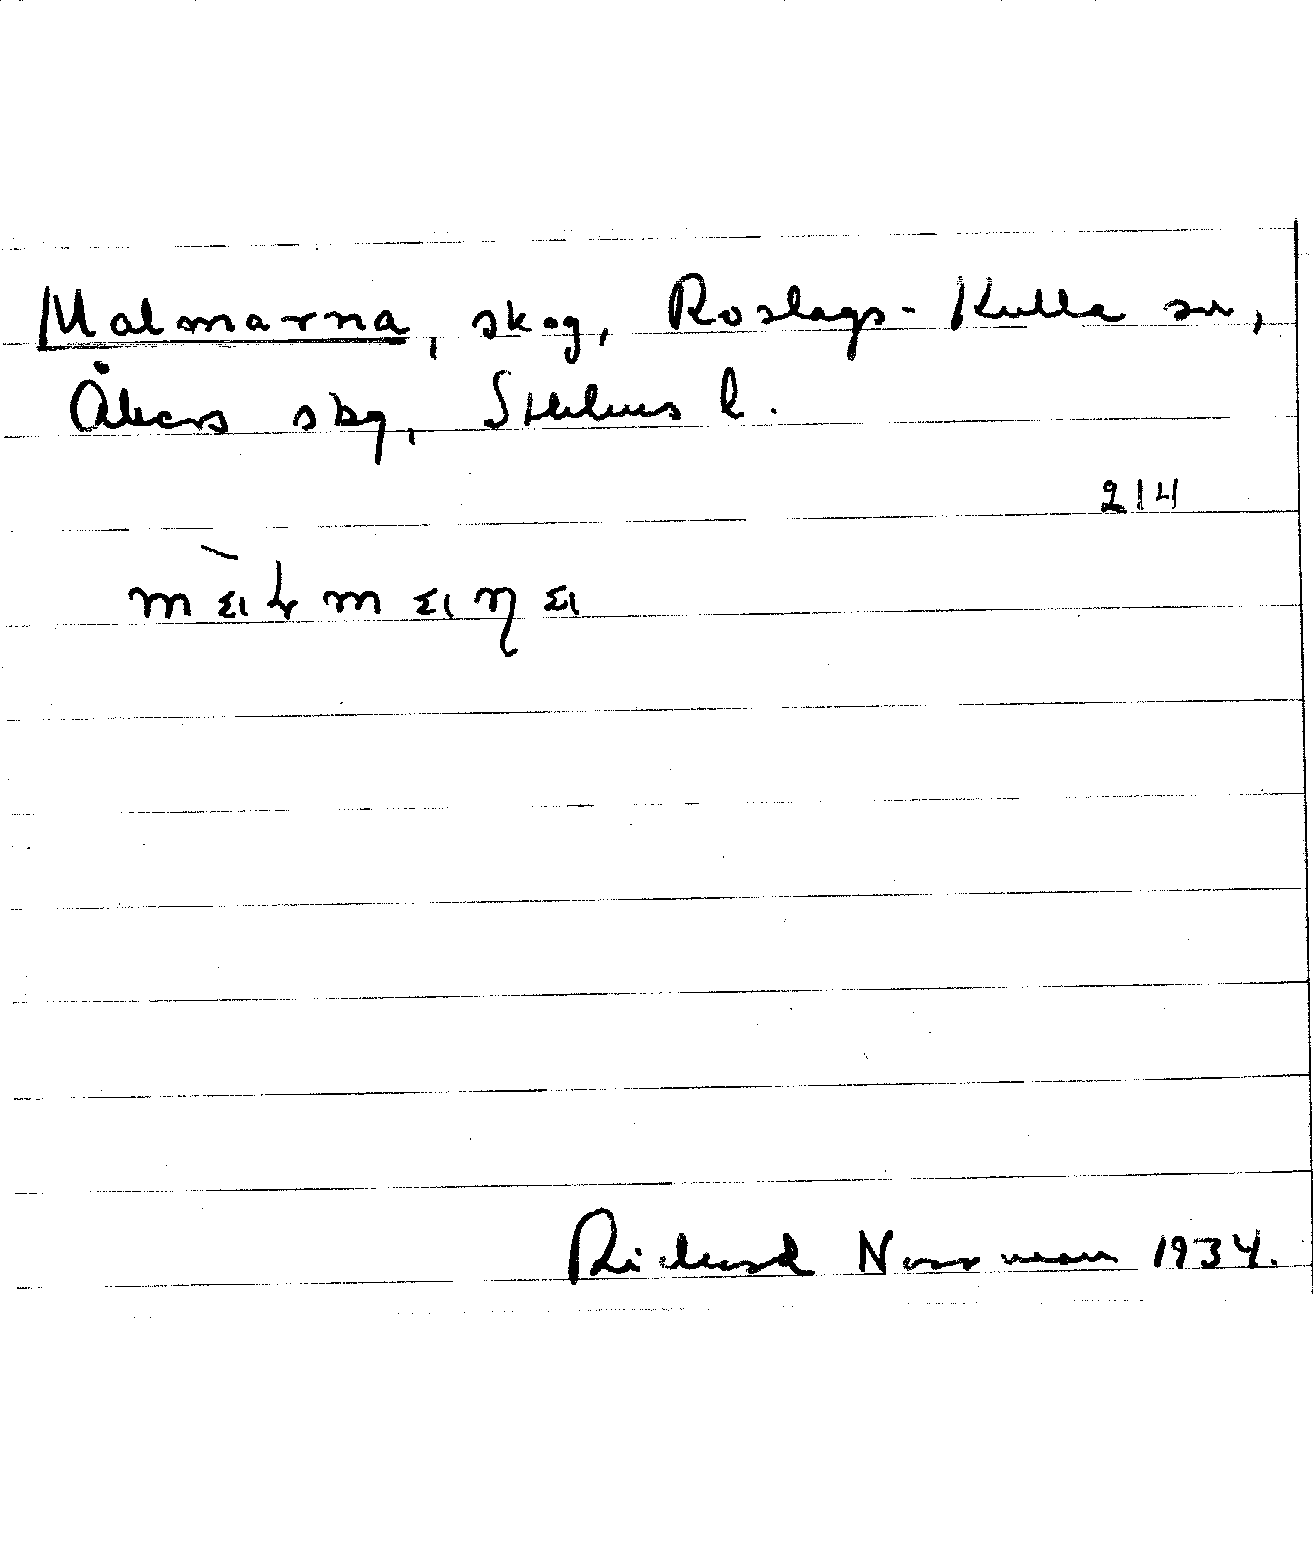 Malmarna, skog, Roslags-Kulla sn,
Åkers skg, Sthlms l.
214
Richard Norrman 1934.